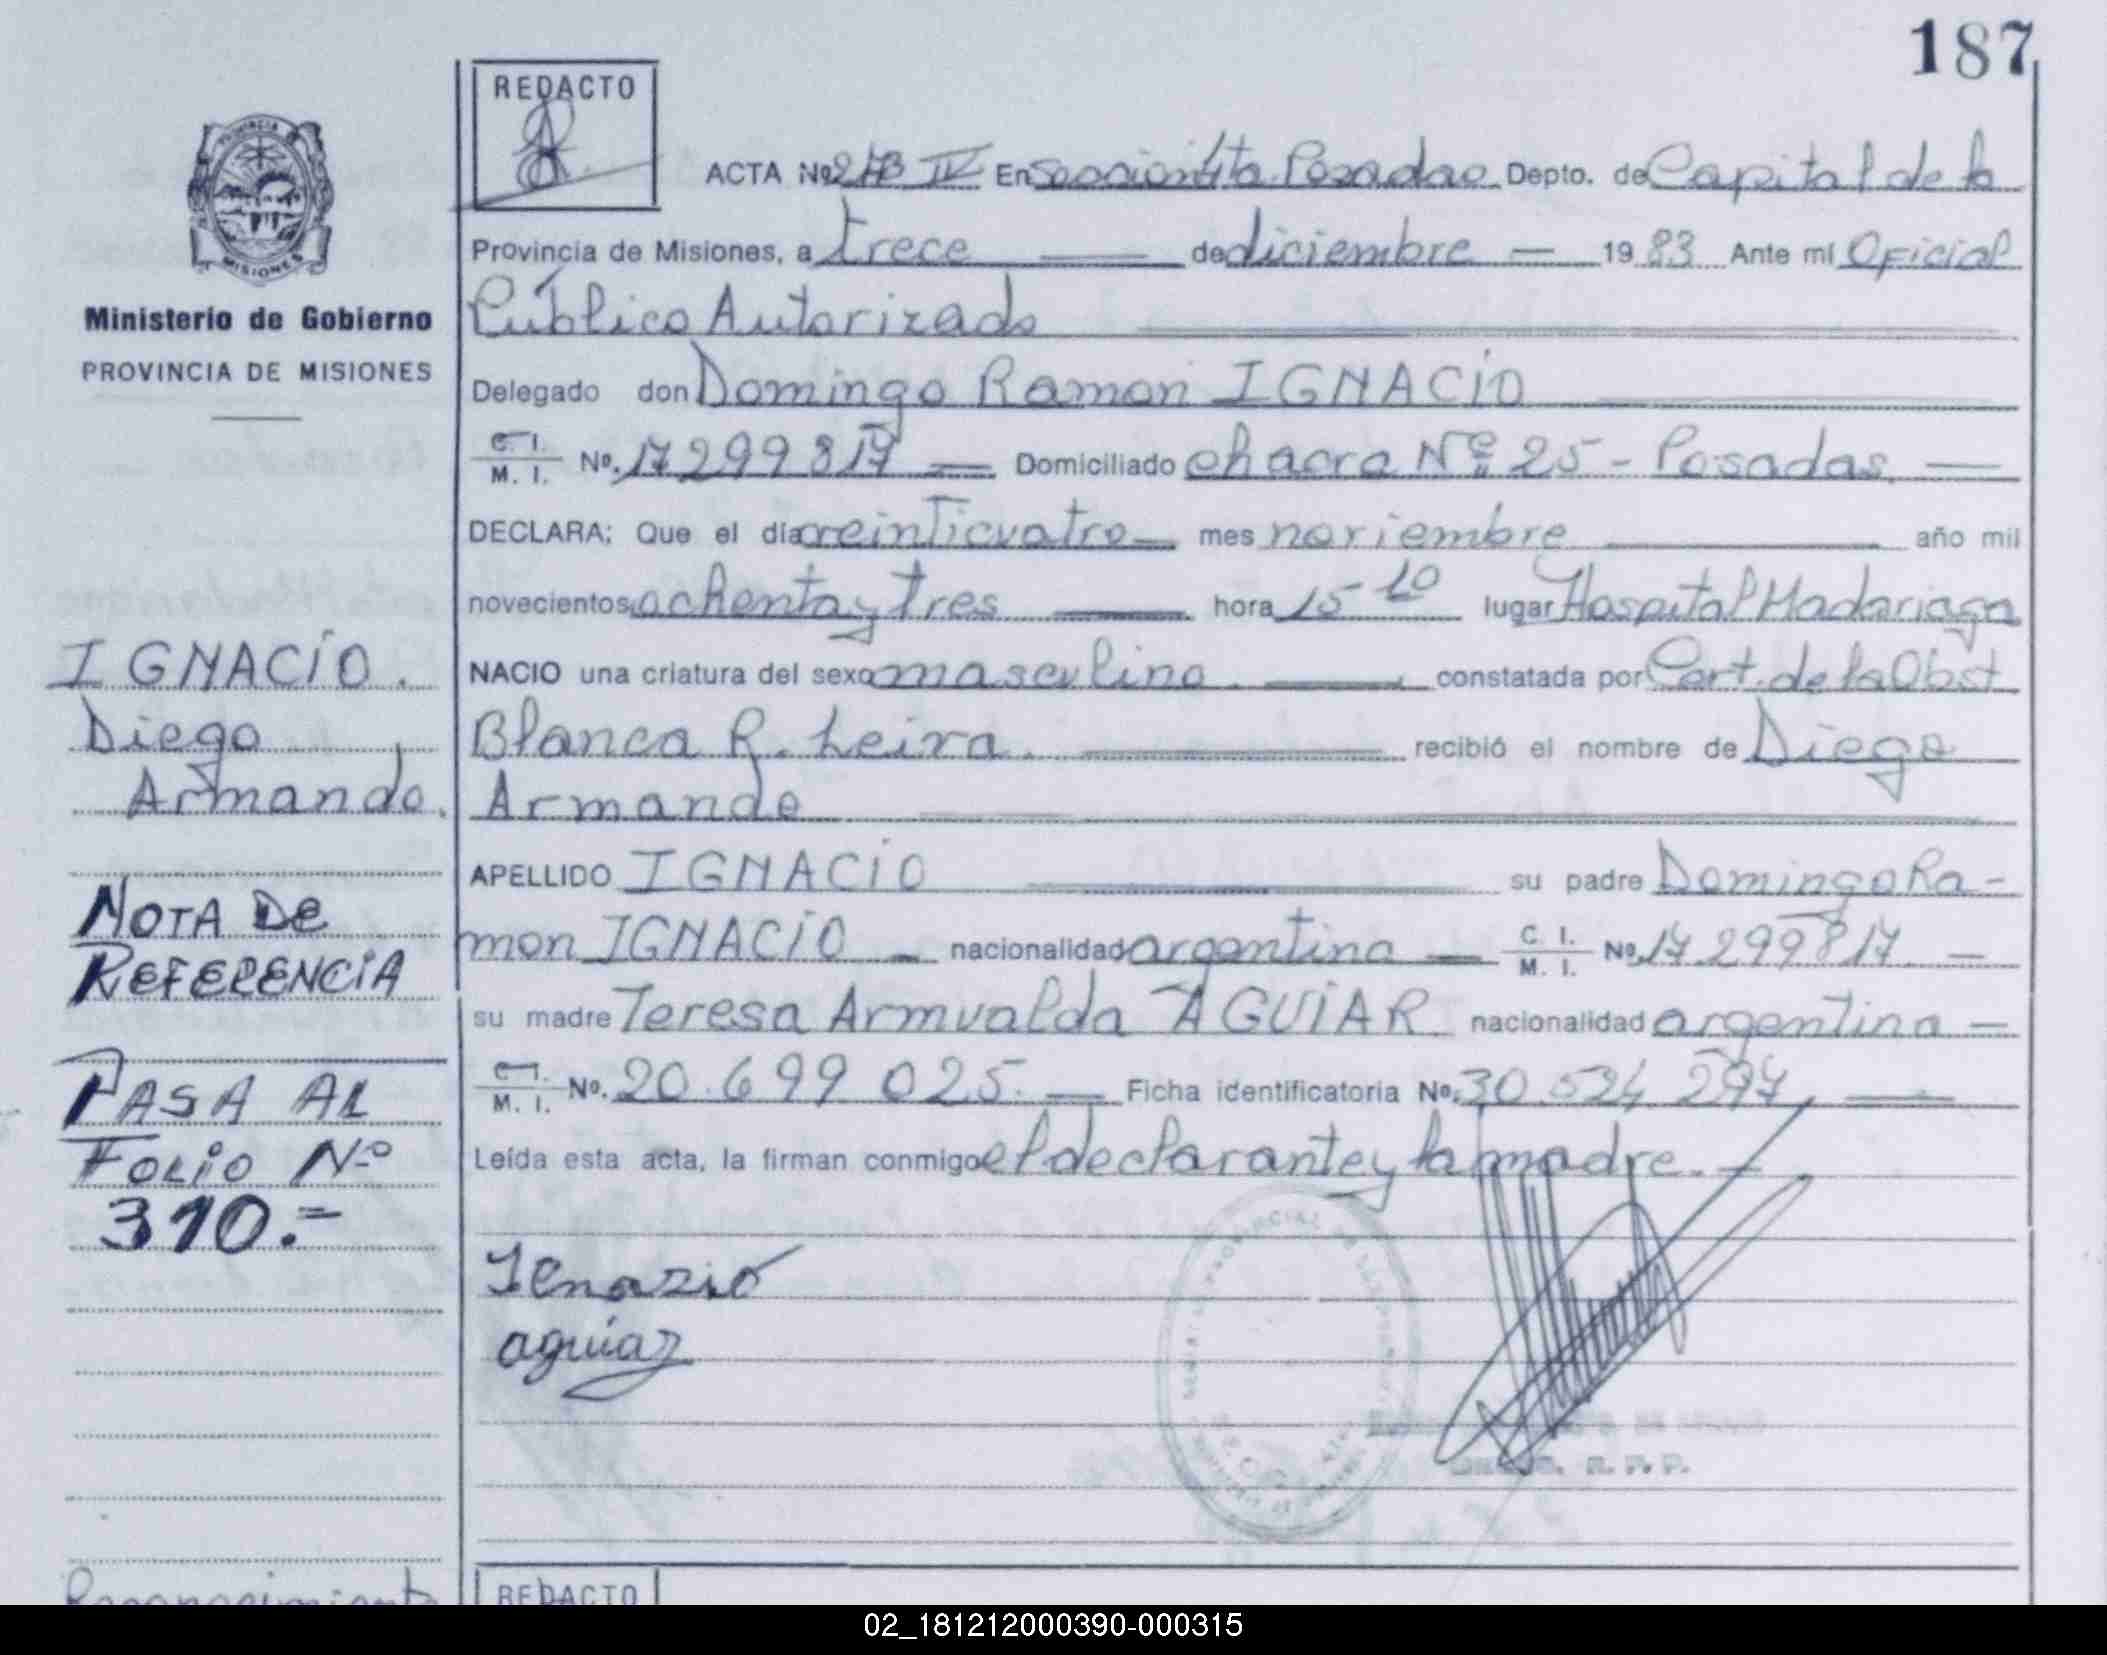 187
REDACTO
ACTA Nº 2173 IV En sección 4ta Posadas Depto. de Capital de la
Provincia de Misiones, a trece de diciembre 1983 Ante mí Oficial
Público Autorizado
Delegado don Domingo Ramon IGNACIO
C. I. / M. I. Nº. 17299817 Domiciliado chacra Nº 25 - Posadas
DECLARA: Que el día veinticuatro mes noviembre año mil
novecientos ochenta y tres hora 15 10 lugar Hospital Madariaga
NACIO una criatura del sexo masculino. constatada por Cert. de la Obst
Blanca R. Leiva. recibió el nombre de Diego
Armando
APELLIDO IGNACIO su padre Domingo Ra-
mon IGNACIO nacionalidad argentina C. I. / M. I. Nº. 17299817
su madre Teresa Armualda AGUIAR nacionalidad argentina
C. I. / M. I. Nº. 20.699 025. Ficha identificatoria Nº. 30.524 297
Leída esta acta, la firman conmigo el declarante y la madre.
Ignazio
aguiar
PROVINCIA DE
MISIONES
Ministerio de Gobierno
PROVINCIA DE MISIONES
IGNACIO.
Diego
Armando.
NOTA DE
REFERENCIA
PASA AL
FOLIO Nº
310.=
Reconocimiento
REDACTO
02_181212000390-000315